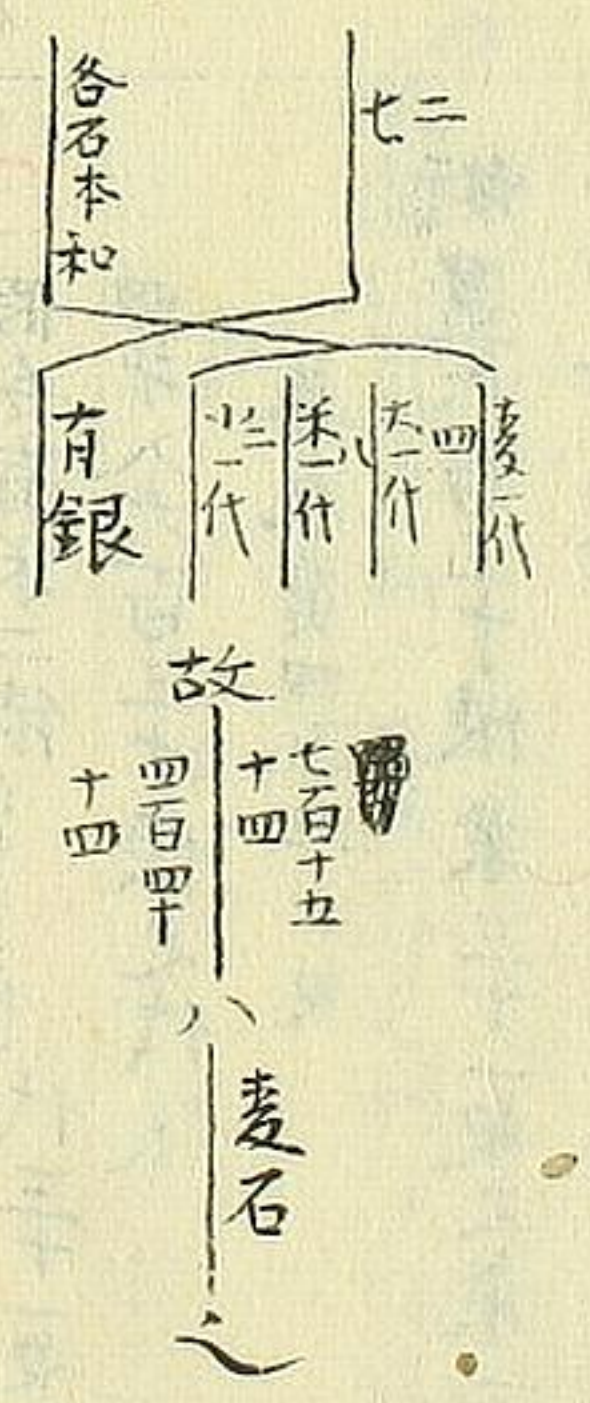 二
七
各石本和
麦一代
四
大一代
八
米一代
二
小一代
有銀
故
七百十五
十四
四百四十
十四
八
麦石
之